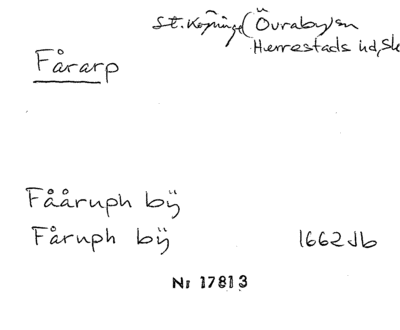 St. Köpinge (Övraby) sn
Herrestads hd, Sk
Fårarp
Fååruph bÿ
Fåruph bÿ 1662 Jb
Nr 17813